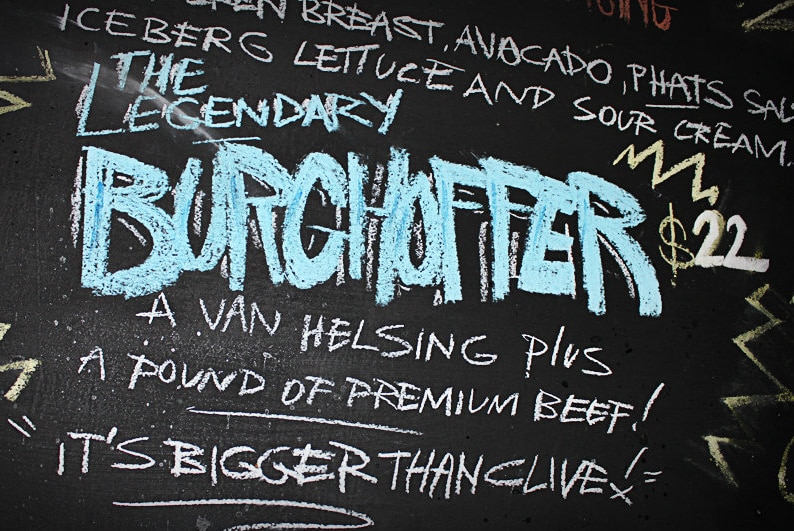 BREAST, AVOCADO, PHATS
ICEBERG LETTUCE AND SOUR CREAM.
THE
LEGENDARY
BURGHOFFER $22
A VAN HELSING PLUS
A POUND OF PREMIUM BEEF!
IT'S BIGGER THAN CLIVE!